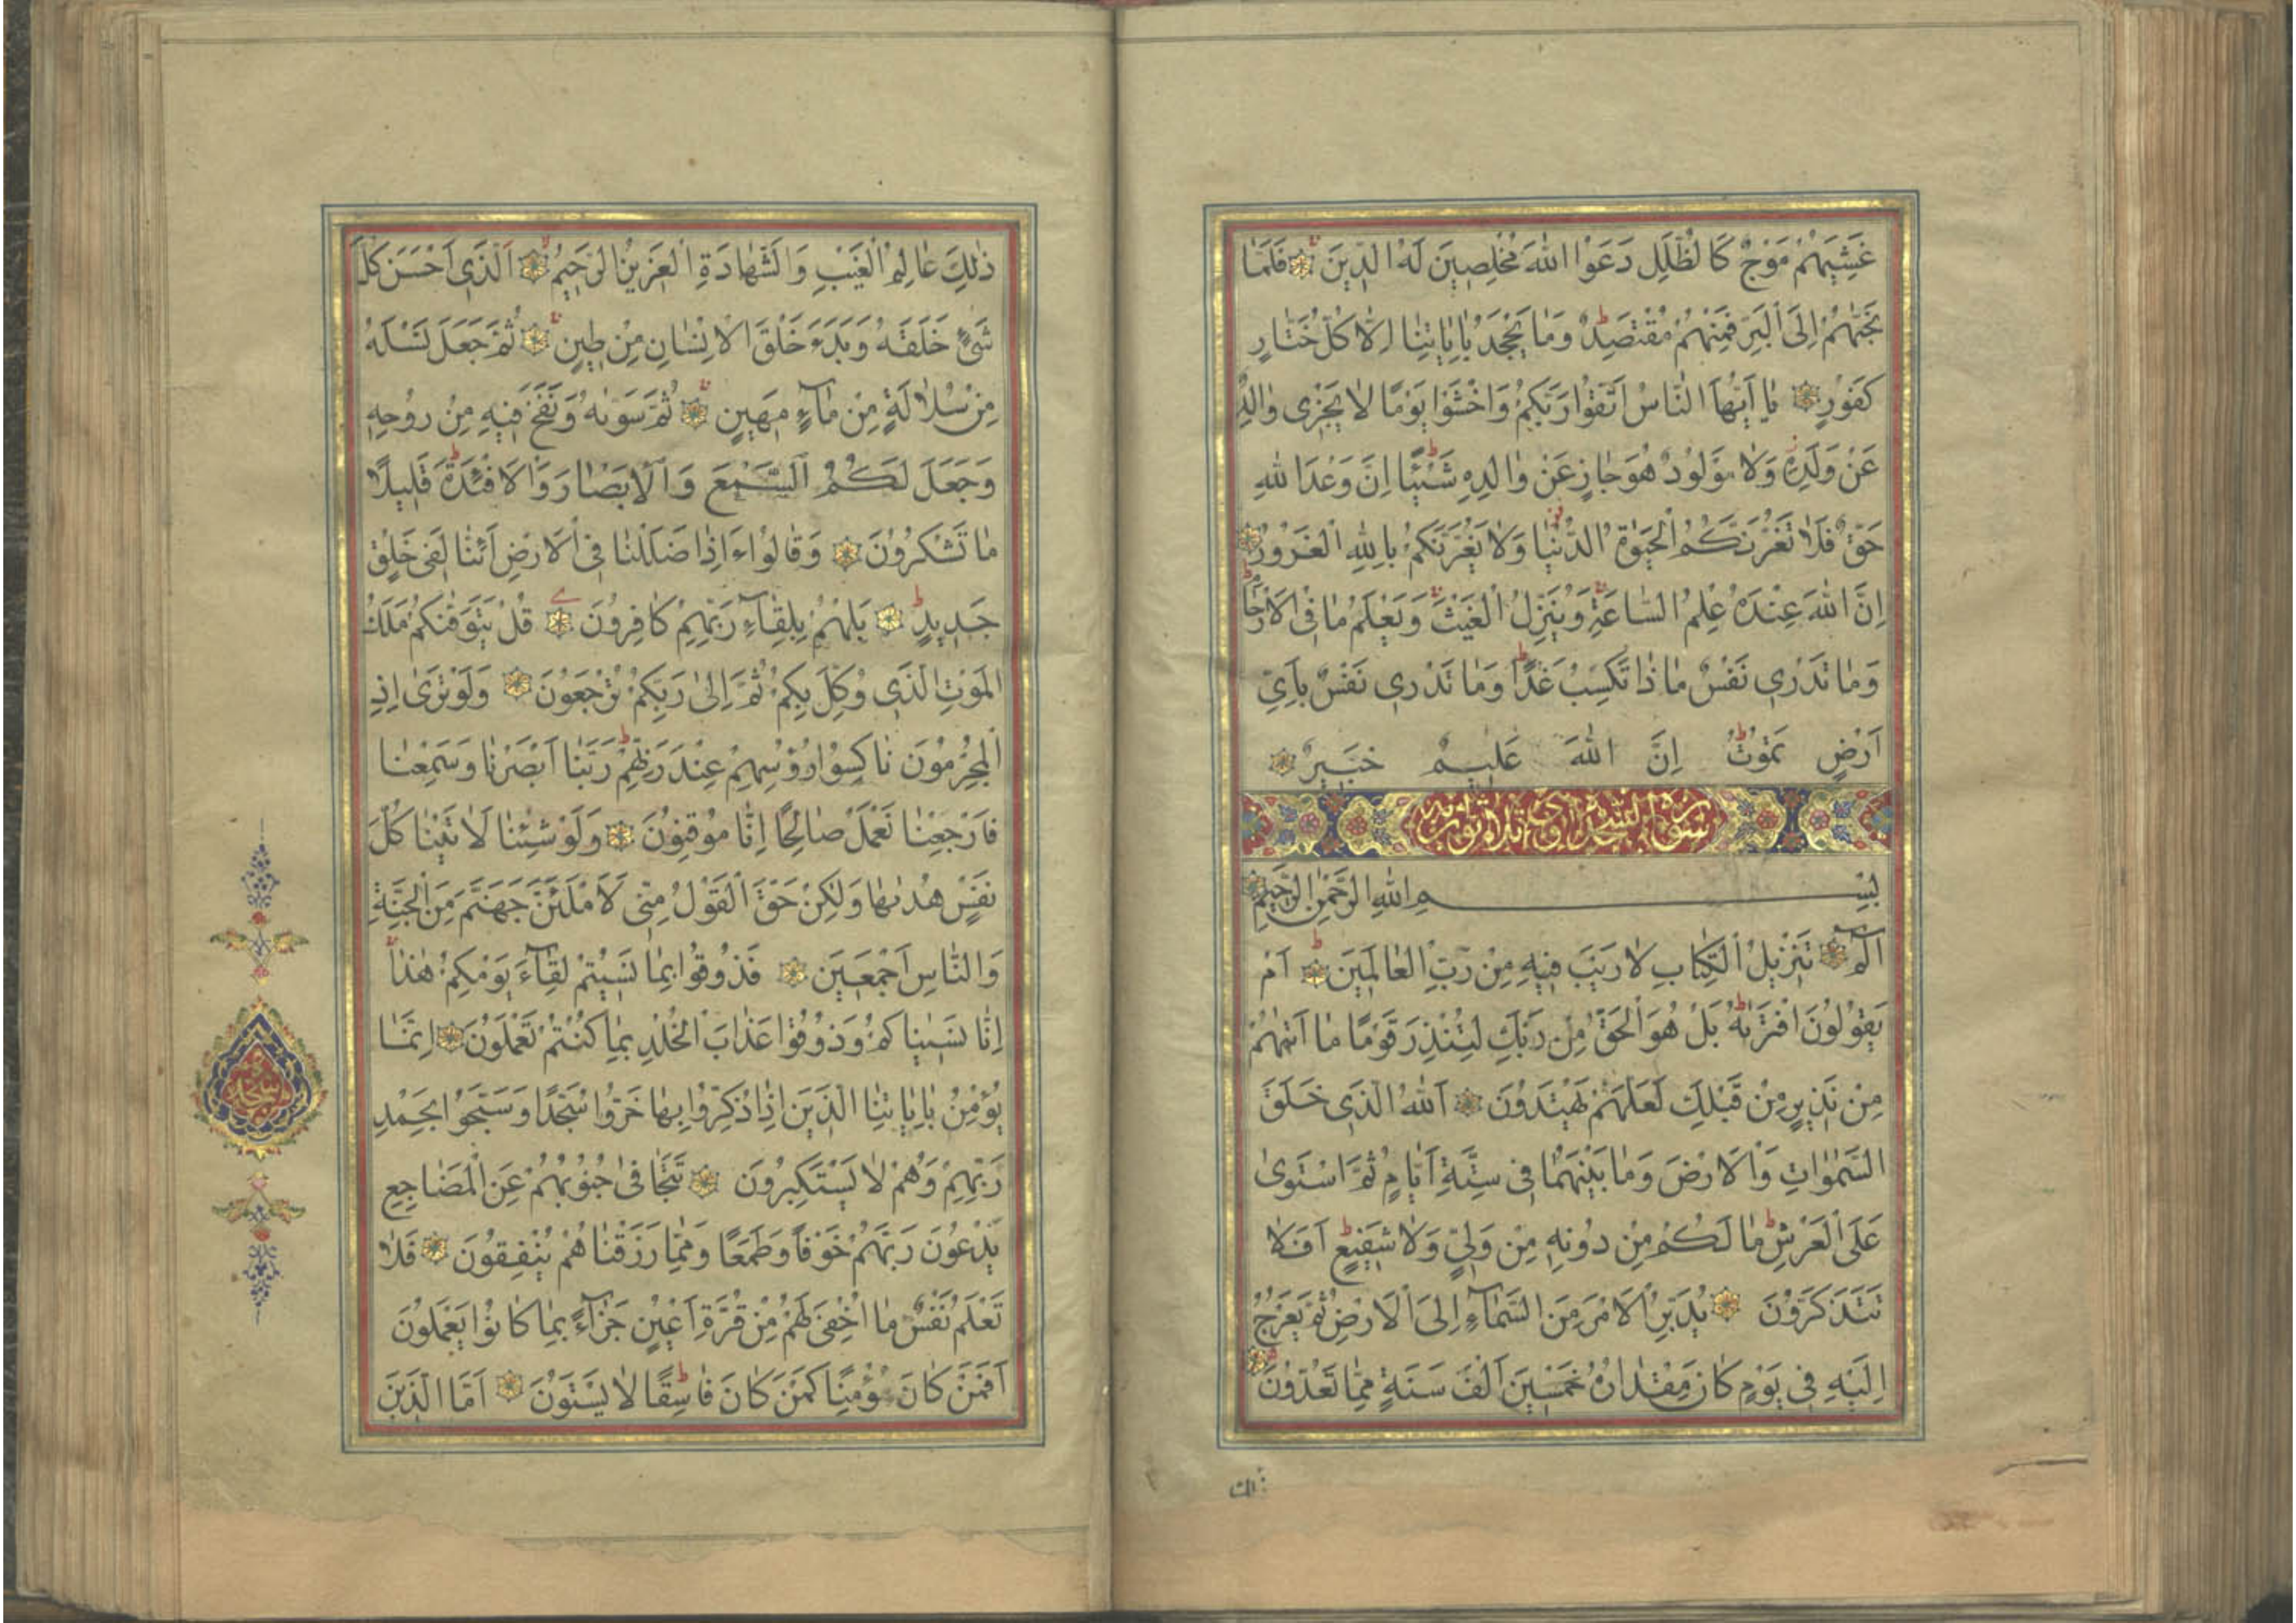 غَشِيَهُمْ مَوْجٌ كَالظُّلَلِ دَعَوُا اللّٰهَ مُخْلِصِينَ لَهُ الدِّينَ فَلَمَّا
نَجّٰيهُمْ اِلَى الْبَرِّ فَمِنْهُمْ مُقْتَصِدٌ وَمَا يَجْحَدُ بِاٰيَاتِنَا اِلَّا كُلُّ خَتَّارٍ
كَفُورٍ يَا اَيُّهَا النَّاسُ اتَّقُوا رَبَّكُمْ وَاخْشَوْا يَوْمًا لَا يَجْزِى وَالِدٌ
عَنْ وَلَدِهٖ وَلَا مَوْلُودٌ هُوَ جَازٍ عَنْ وَالِدِهِ شَيْئًا اِنَّ وَعْدَ اللّٰهِ
حَقٌّ فَلَا تَغُرَّنَّكُمُ الْحَيٰوةُ الدُّنْيَا وَلَا يَغُرَّنَّكُمْ بِاللّٰهِ الْغَرُورُ
اِنَّ اللّٰهَ عِنْدَهُ عِلْمُ السَّاعَةِ وَيُنَزِّلُ الْغَيْثَ وَيَعْلَمُ مَا فِى الْاَرْحَامِ
وَمَا تَدْرِى نَفْسٌ مَاذَا تَكْسِبُ غَدًا وَمَا تَدْرِى نَفْسٌ بِاَىِّ
اَرْضٍ تَمُوتُ اِنَّ اللّٰهَ عَلِيمٌ خَبِيرٌ
سورة السجدة وهى ثلاثون اية
بِسْمِ اللّٰهِ الرَّحْمٰنِ الرَّحِيمِ
الٓمٓ تَنْزِيلُ الْكِتَابِ لَا رَيْبَ فِيهِ مِنْ رَبِّ الْعَالَمِينَ اَمْ
يَقُولُونَ افْتَرٰيهُ بَلْ هُوَ الْحَقُّ مِنْ رَبِّكَ لِتُنْذِرَ قَوْمًا مَا اَتٰيهُمْ
مِنْ نَذِيرٍ مِنْ قَبْلِكَ لَعَلَّهُمْ يَهْتَدُونَ اَللّٰهُ الَّذِى خَلَقَ
السَّمٰوَاتِ وَالْاَرْضَ وَمَا بَيْنَهُمَا فِى سِتَّةِ اَيَّامٍ ثُمَّ اسْتَوٰى
عَلَى الْعَرْشِ مَا لَكُمْ مِنْ دُونِهِ مِنْ وَلِىٍّ وَلَا شَفِيعٍ اَفَلَا
تَتَذَكَّرُونَ يُدَبِّرُ الْاَمْرَ مِنَ السَّمَاءِ اِلَى الْاَرْضِ ثُمَّ يَعْرُجُ
اِلَيْهِ فِى يَوْمٍ كَانَ مِقْدَارُهُ خَمْسِينَ اَلْفَ سَنَةٍ مِمَّا تَعُدُّونَ
ذٰلِكَ
ذٰلِكَ عَالِمُ الْغَيْبِ وَالشَّهَادَةِ الْعَزِيزُ الرَّحِيمُ اَلَّذِى اَحْسَنَ كُلَّ
شَىْءٍ خَلَقَهُ وَبَدَءَ خَلْقَ الْاِنْسَانِ مِنْ طِينٍ ثُمَّ جَعَلَ نَسْلَهُ
مِنْ سُلَالَةٍ مِنْ مَاءٍ مَهِينٍ ثُمَّ سَوّٰيهُ وَنَفَخَ فِيهِ مِنْ رُوحِهِ
وَجَعَلَ لَكُمُ السَّمْعَ وَالْاَبْصَارَ وَالْاَفْئِدَةَ قَلِيلًا
مَا تَشْكُرُونَ وَقَالُوا ءَاِذَا ضَلَلْنَا فِى الْاَرْضِ اَئِنَّا لَفِى خَلْقٍ
جَدِيدٍ بَلْ هُمْ بِلِقَاءِ رَبِّهِمْ كَافِرُونَ قُلْ يَتَوَفّٰيكُمْ مَلَكُ
الْمَوْتِ الَّذِى وُكِّلَ بِكُمْ ثُمَّ اِلٰى رَبِّكُمْ تُرْجَعُونَ وَلَوْ تَرٰى اِذِ
الْمُجْرِمُونَ نَاكِسُوا رُؤُسِهِمْ عِنْدَ رَبِّهِمْ رَبَّنَا اَبْصَرْنَا وَسَمِعْنَا
فَارْجِعْنَا نَعْمَلْ صَالِحًا اِنَّا مُوقِنُونَ وَلَوْ شِئْنَا لَاٰتَيْنَا كُلَّ
نَفْسٍ هُدٰيهَا وَلٰكِنْ حَقَّ الْقَوْلُ مِنِّى لَاَمْلَئَنَّ جَهَنَّمَ مِنَ الْجِنَّةِ
وَالنَّاسِ اَجْمَعِينَ فَذُوقُوا بِمَا نَسِيتُمْ لِقَاءَ يَوْمِكُمْ هٰذَا
اِنَّا نَسِينَاكُمْ وَذُوقُوا عَذَابَ الْخُلْدِ بِمَا كُنْتُمْ تَعْمَلُونَ اِنَّمَا
يُؤْمِنُ بِاٰيَاتِنَا الَّذِينَ اِذَا ذُكِّرُوا بِهَا خَرُّوا سُجَّدًا وَسَبَّحُوا بِحَمْدِ
رَبِّهِمْ وَهُمْ لَا يَسْتَكْبِرُونَ تَتَجَافٰى جُنُوبُهُمْ عَنِ الْمَضَاجِعِ
يَدْعُونَ رَبَّهُمْ خَوْفًا وَطَمَعًا وَمِمَّا رَزَقْنَاهُمْ يُنْفِقُونَ فَلَا
تَعْلَمُ نَفْسٌ مَا اُخْفِىَ لَهُمْ مِنْ قُرَّةِ اَعْيُنٍ جَزَاءً بِمَا كَانُوا يَعْمَلُونَ
اَفَمَنْ كَانَ مُؤْمِنًا كَمَنْ كَانَ فَاسِقًا لَا يَسْتَوُونَ اَمَّا الَّذِينَ
سجده